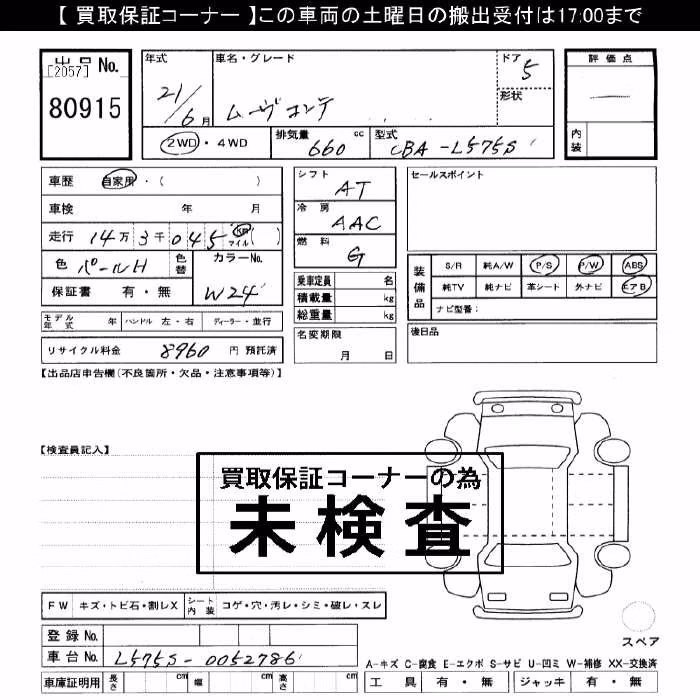 【 買取保証コーナー 】この車両の土曜日の搬出受付は17:00まで
出品 No.
[2057]
80915
年式
21/6月
車名・グレード
ムーヴコンテ
ドア
5
形状
評価点
内装
2WD・4WD
排気量
660 cc
型式
CBA-L575S
車歴 自家用・( )
車検 年 月
走行 14万3千045 Km マイル( )
色 パールH
色替
カラーNo.
W24
保証書 有・無
モデル年式 年 ハンドル 左・右 ディーラー・並行
リサイクル料金 8960 円 預託済
シフト
AT
冷房
AAC
燃料
G
乗車定員 名
積載量 kg
総重量 kg
名変期限
月 日
セールスポイント
装備品
S/R 純A/W P/S P/W ABS
純TV 純ナビ 革シート 外ナビ エアB
ナビ型番:
後日品
【出品店申告欄(不良箇所・欠品・注意事項等)】
【検査員記入】
買取保証コーナーの為
未検査
FW キズ・トビ石・割レX シート内装 コゲ・穴・汚レ・シミ・破レ・スレ
登録No.
車台No. L575S-0052786
車庫証明用 長さ cm 幅 cm 高さ cm
スペア
A-キズ C-腐食 E-エクボ S-サビ U-凹ミ W-補修 XX-交換済
工具 有・無 ジャッキ 有・無